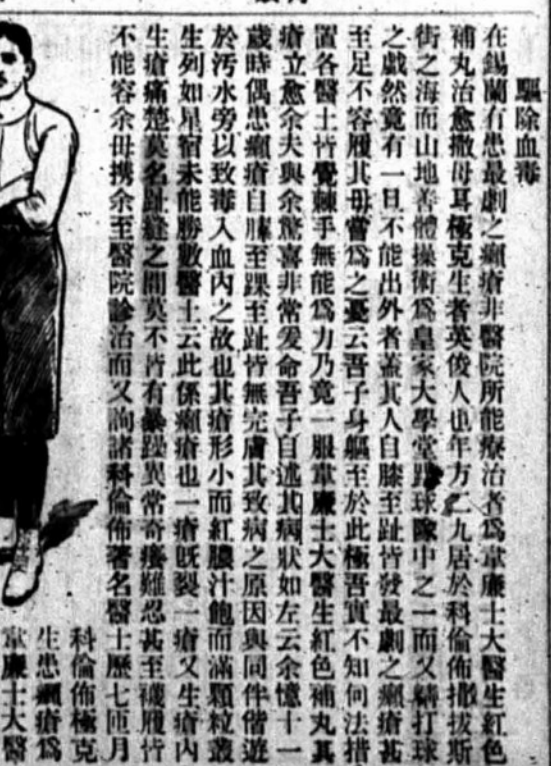 驅除血毒
在錫蘭有患最劇之癩瘡非醫院所能療治者爲韋廉士大醫生紅色
補丸治愈撒母耳極克生者英俊人也年方二九居於科倫佈撒拔斯
街之海而山地善體操術爲皇家大學堂踢球隊中之一而又擣打球
之戲然竟有一旦不能出外者蓋其人自膝至趾皆發最劇之癩瘡甚
至足不容履其母嘗爲之憂云吾子身軀至於此極吾實不知何法措
置各醫士皆覺棘手無能爲力乃竟一服韋廉士大醫生紅色補丸其
瘡立愈余夫與余驚喜非常爰命吾子自述其病狀如左云余憶十一
歲時偶患癩瘡自膝至踝至趾皆無完膚其致病之原因與同伴偕遊
於汚水旁以致毒入血內之故也其瘡形小而紅膿汁飽而滿顆粒叢
生列如星宿未能勝數醫士云此係癩瘡也一瘡旣裂一瘡又生瘡內
生瘡痛楚莫名趾縫之間莫不皆有暴躁異常奇癢難忍甚至襪履皆
不能容余母携余至醫院診治而又詢諸科倫佈著名醫士歷七匝月
科倫佈極克
生患癩瘡爲
韋廉士大醫